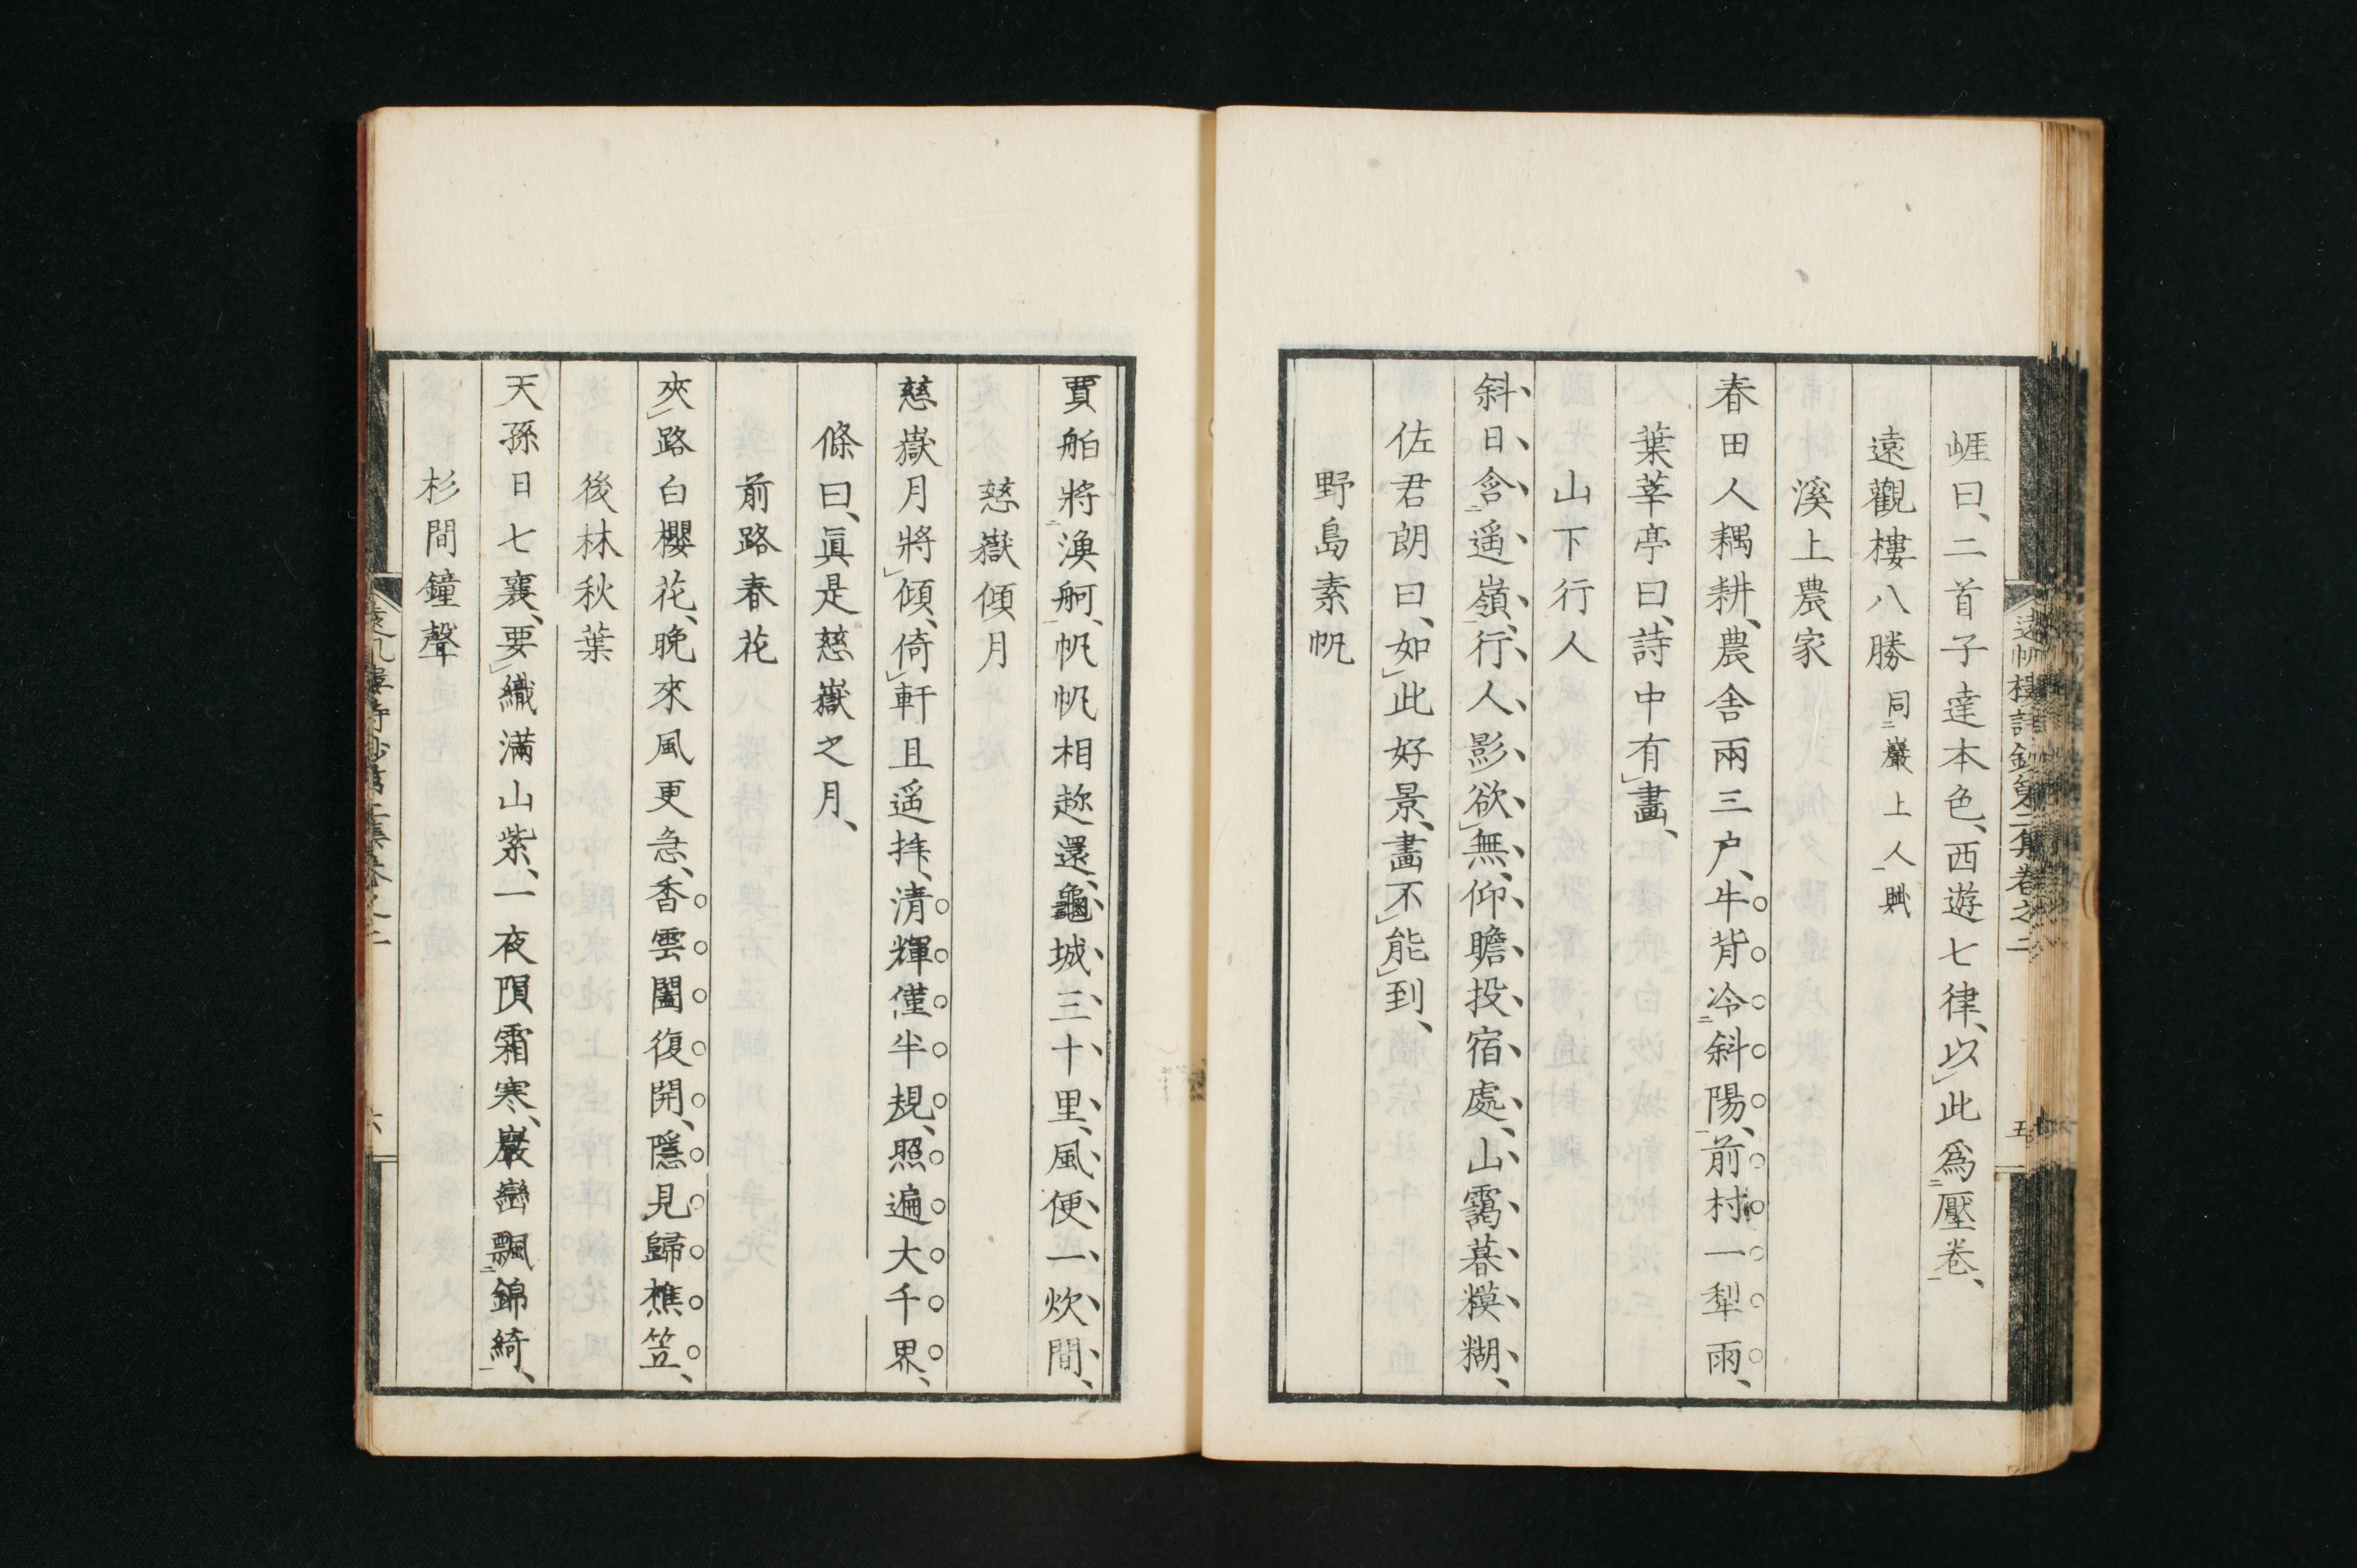 崕曰、二首子達本色、西遊七律、以此爲壓卷、
遠觀樓八勝 同巖上人賦
溪上農家
春田人耦耕、農舍兩三戶、牛背冷斜陽、前村一犁雨、
葉莘亭曰、詩中有畫、
山下行人
斜日含遥嶺、行人影欲無、仰瞻投宿處、山靄暮糢糊、
佐君朗曰、如此好景、畫不能到、
野島素帆
遠帆樓詩鈔第二集卷之二 五
賈舶將漁舸、帆帆相趂還、龜城三十里、風便一炊間、
慈嶽傾月
慈嶽月將傾、倚軒且遥拜、清輝僅半規、照遍大千界、
條曰、眞是慈嶽之月、
前路春花
夾路白櫻花、晚來風更急、香雲闔復開、隱見歸樵笠、
後林秋葉
天孫日七襄、要織滿山紫、一夜隕霜寒、巖巒飄錦綺、
杉間鐘聲
遠帆樓詩鈔第二集卷之二 六